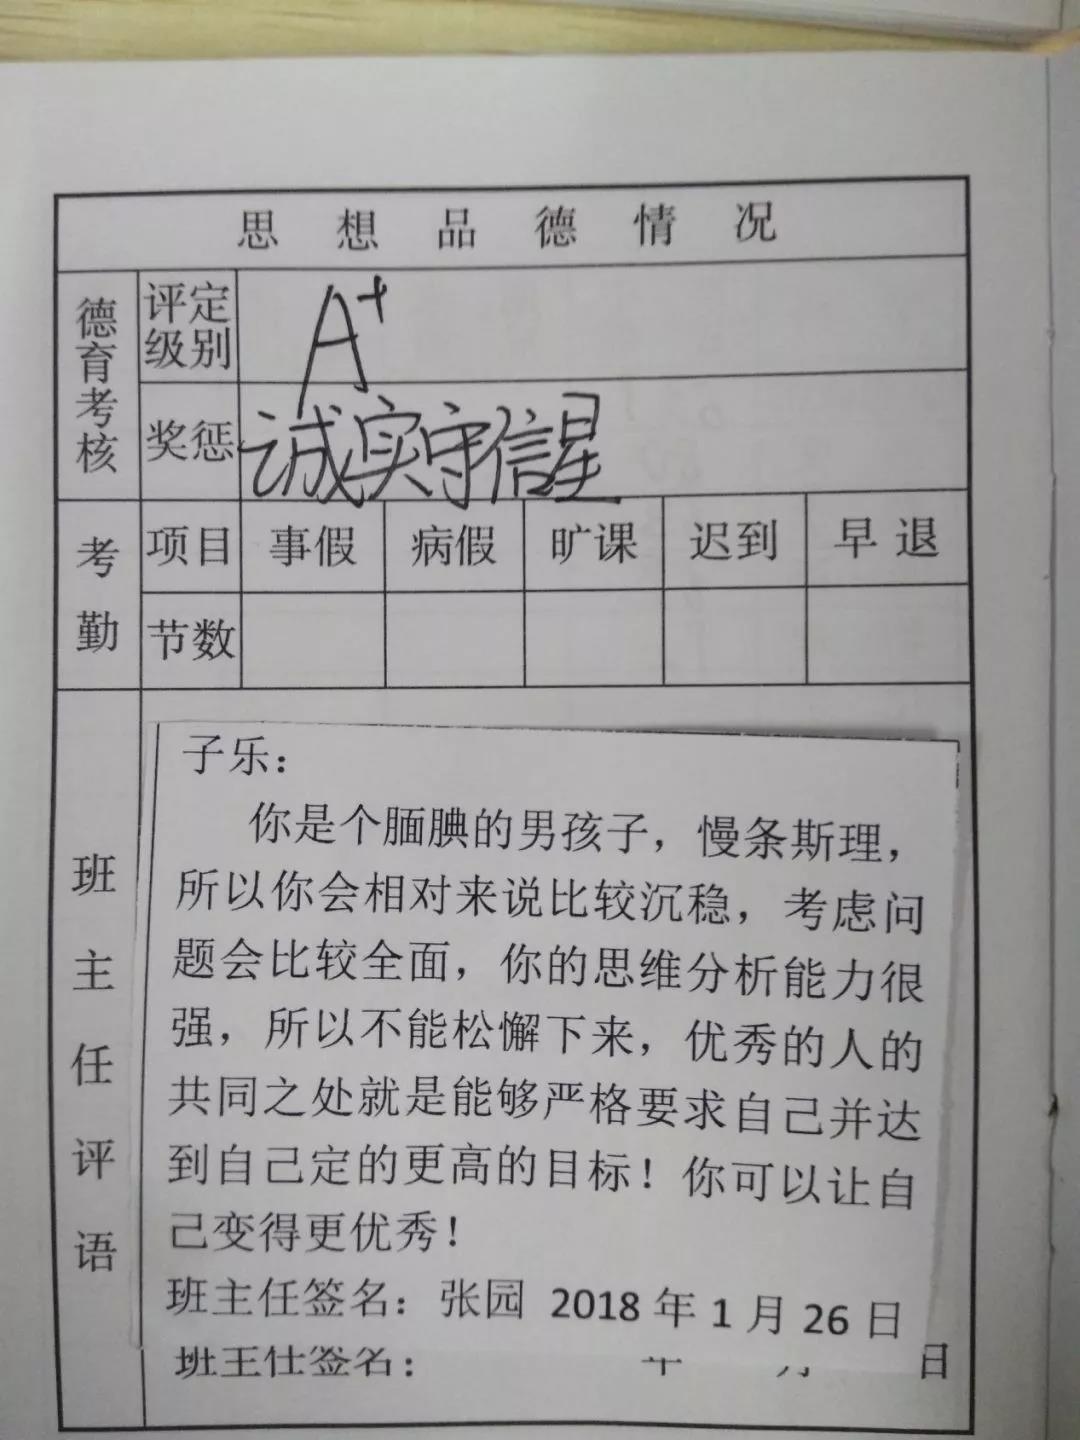 思想品德情况
德育考核
评定级别
A+
奖惩
诚实守信星
考勤
项目 事假 病假 旷课 迟到 早退
节数
班主任评语
子乐：
你是个腼腆的男孩子，慢条斯理，
所以你会相对来说比较沉稳，考虑问
题会比较全面，你的思维分析能力很
强，所以不能松懈下来，优秀的人的
共同之处就是能够严格要求自己并达
到自己定的更高的目标！你可以让自
己变得更优秀！
班主任签名：张园 2018年1月26日
班主任签名： 年 月 日